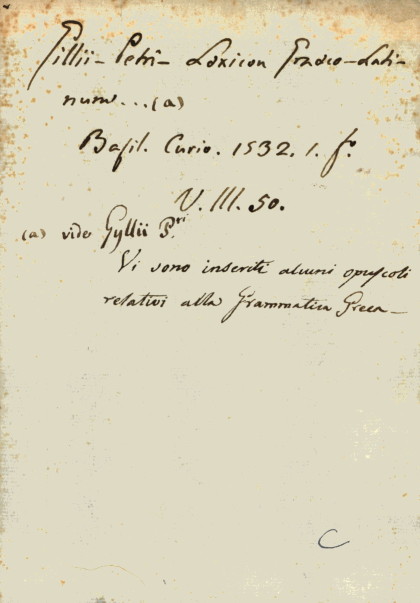 Gillii - Petri - Lexicon Graeco-Lati-
num...(a)
Basil. Curio. 1532. 1. fo.
V. III. 50.
(a) vide Gyllii Ptri
Vi sono inseriti alcuni opuscoli
relativi alla Grammatica Greca -
C